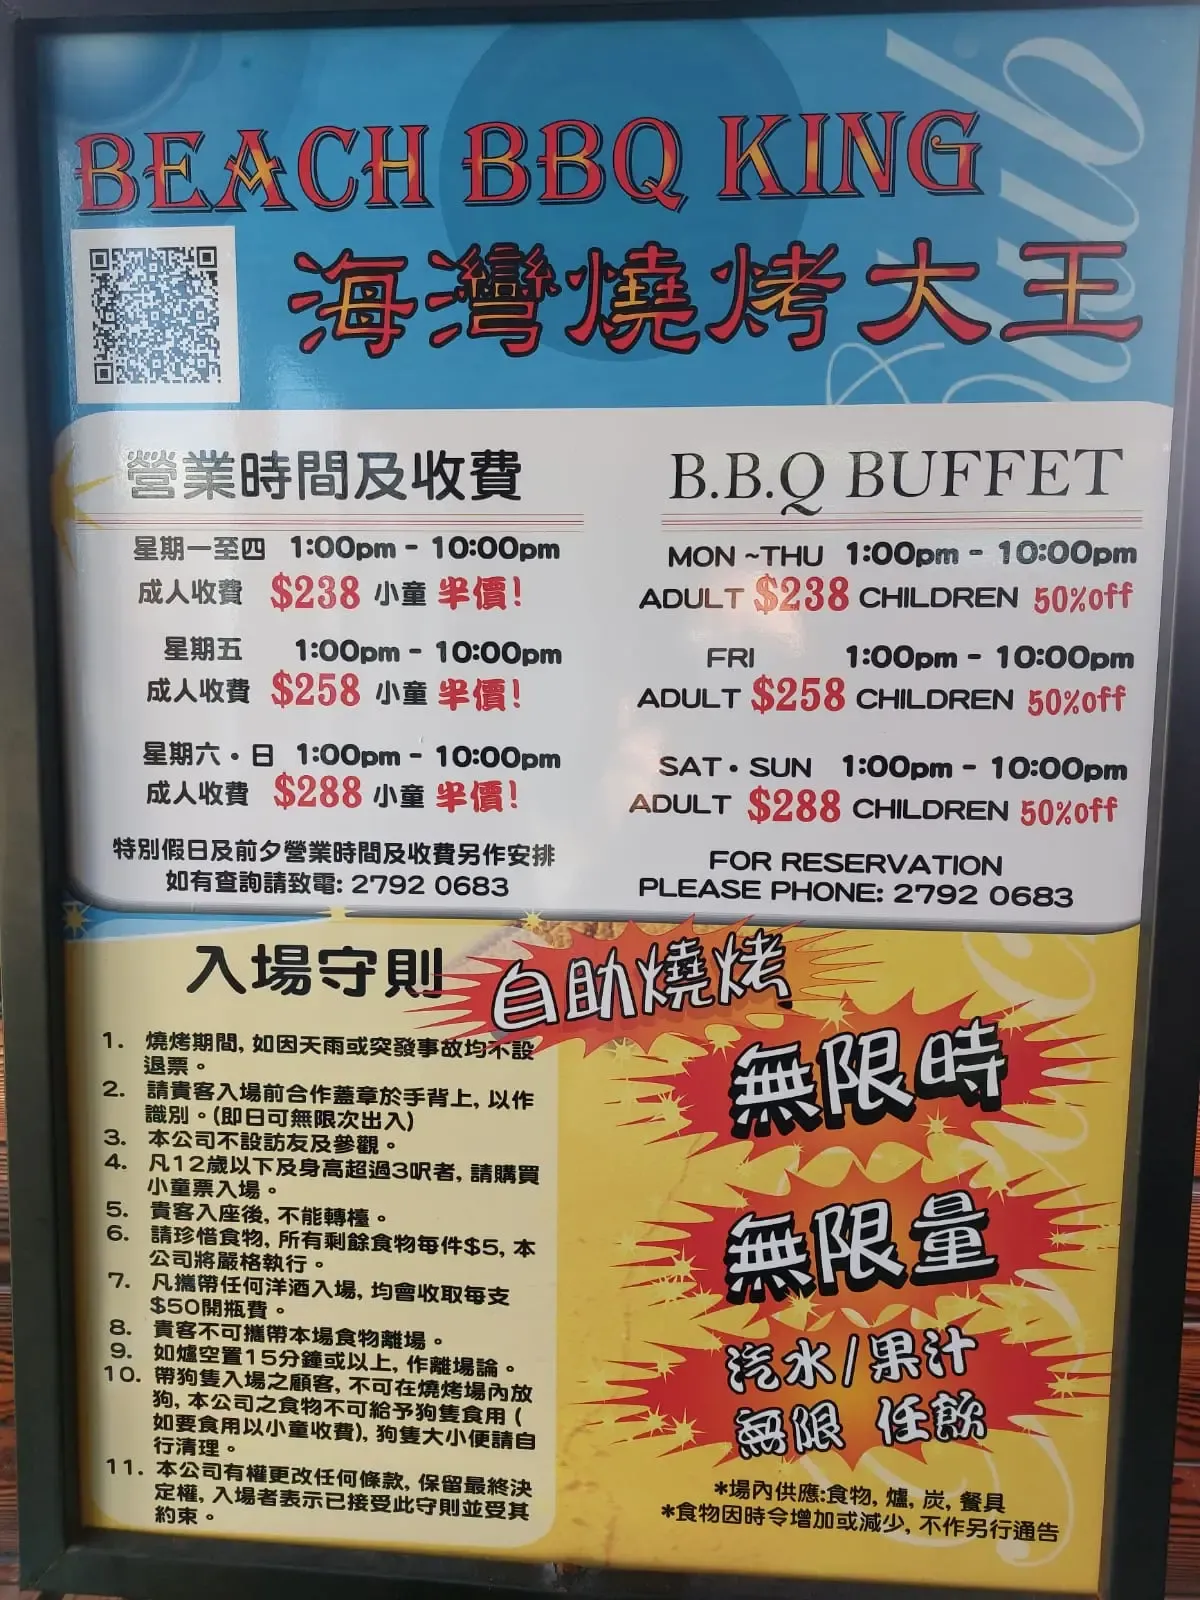 BEACH BBQ KING
海灣燒烤大王
營業時間及收費
星期一至四 1:00pm - 10:00pm
成人收費 $238 小童 半價!
星期五 1:00pm - 10:00pm
成人收費 $258 小童 半價!
星期六・日 1:00pm - 10:00pm
成人收費 $288 小童 半價!
特別假日及前夕營業時間及收費另作安排
如有查詢請致電: 2792 0683
B.B.Q BUFFET
MON ~THU 1:00pm - 10:00pm
ADULT $238 CHILDREN 50%off
FRI 1:00pm - 10:00pm
ADULT $258 CHILDREN 50%off
SAT・SUN 1:00pm - 10:00pm
ADULT $288 CHILDREN 50%off
FOR RESERVATION
PLEASE PHONE: 2792 0683
入場守則
1. 燒烤期間, 如因天雨或突發事故均不設
退票。
2. 請貴客入場前合作蓋章於手背上, 以作
識別。(即日可無限次出入)
3. 本公司不設訪友及參觀。
4. 凡12歲以下及身高超過3呎者, 請購買
小童票入場。
5. 貴客入座後, 不能轉檯。
6. 請珍惜食物, 所有剩餘食物每件$5, 本
公司將嚴格執行。
7. 凡攜帶任何洋酒入場, 均會收取每支
$50開瓶費。
8. 貴客不可攜帶本場食物離場。
9. 如爐空置15分鐘或以上, 作離場論。
10. 帶狗隻入場之顧客, 不可在燒烤場內放
狗, 本公司之食物不可給予狗隻食用 (
如要食用以小童收費), 狗隻大小便請自
行清理。
11. 本公司有權更改任何條款, 保留最終決
定權, 入場者表示已接受此守則並受其
約束。
自助燒烤
無限時
無限量
汽水/果汁
無限 任飲
*場內供應:食物, 爐, 炭, 餐具
*食物因時令增加或減少, 不作另行通告